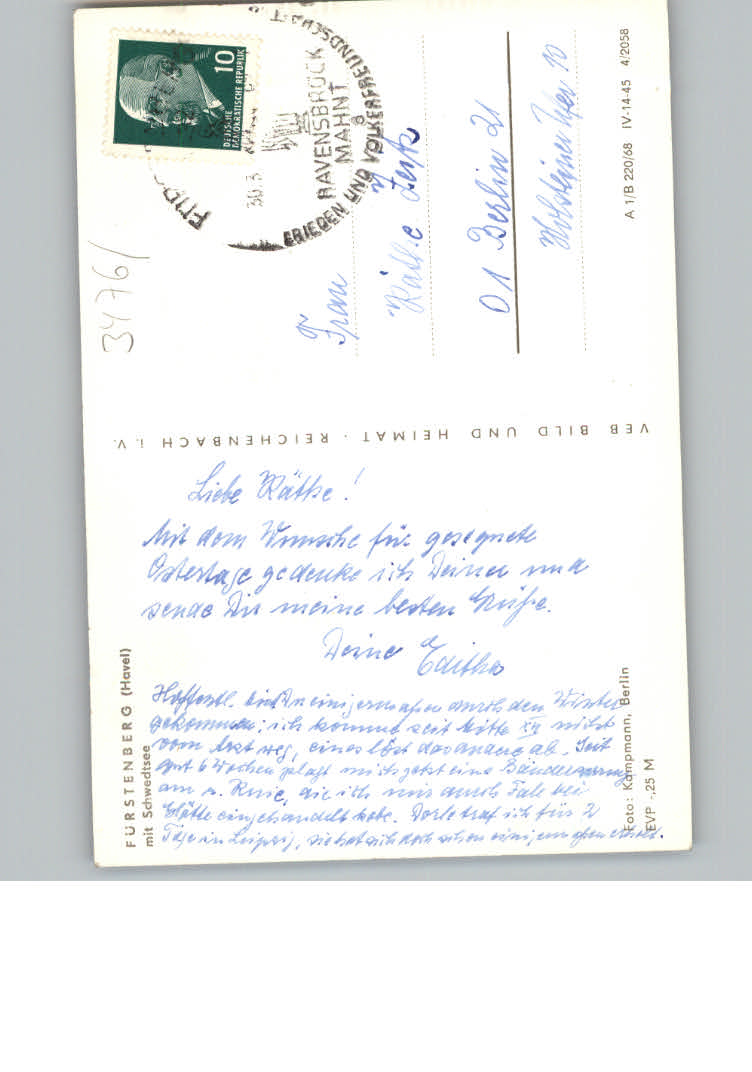 Liebe Käthe!
Mit dem Wunsche für gesegnete
Ostertage gedenke ich Deiner und
sende Dir meine besten Grüße.
Deine Editha
Hoffentl. bist Du einigermaßen durch den Winter
gekommen; ich komme seit Mitte XII nicht
vom Arzt weg, eines löst das andere ab. Seit
gut 6 Wochen plagt mich jetzt eine Bänderzerrung
am r. Knie, die ich mir durch Fall bei
Glätte eingehandelt habe. Dorle traf ich für 2
Tage in Leipzig, sie hat sich doch schon einigermaßen erholt.
FÜRSTENBERG (Havel)
mit Schwedtsee
Foto: Kampmann, Berlin
EVP -,25 M
VEB BILD UND HEIMAT · REICHENBACH i. V.
10
DEUTSCHE
DEMOKRATISCHE REPUBLIK
RAVENSBRÜCK
MAHNT
FRIEDEN UND VÖLKERFREUNDSCHAFT
30.3
Frau
Käthe
01 Berlin 21
Holsteiner Ufer 10
A 1/B 220/68 IV-14-45 4/2058
3476/